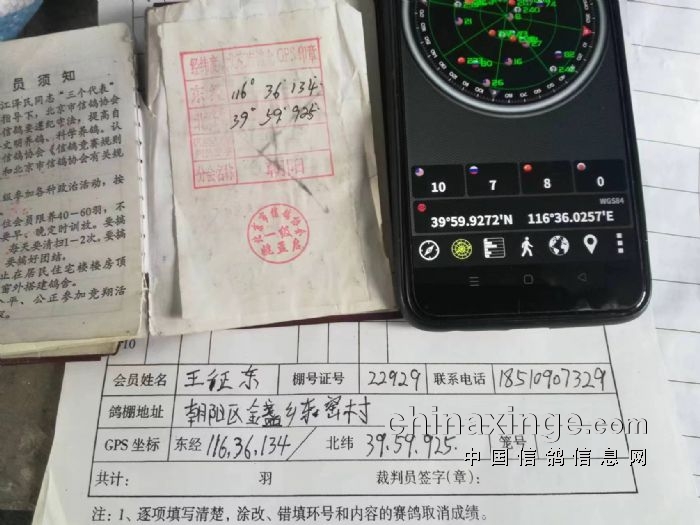 员 须 知
江泽民同志“三个代表”
指导下，北京市信鸽协会
信鸽要遵纪守法，提高自
文明养鸽、科学养鸽。认
信鸽协会《信鸽竞赛规则
和北京市信鸽协会有关规
级参加各种政治活动，按
位会员限养40—60羽，不
要早、晚定时训放。要搞
每天要清扫1—2次。要搞
要搞好团结。
止在居民住宅楼楼房顶
窗外搭建鸽舍。
平，公正参加竞翔活
GPS印章
东经 116° 36′ 134
北纬 39° 59′ 925
分会名称
北京市信鸽协会
一级
10 7 8 0
WGS84
39°59.9272'N 116°36.0257'E
会员姓名 王征东 棚号证号 22929 联系电话 18510907329
鸽棚地址 朝阳区金盏乡东窑村
GPS 坐标 东经 116.36.134 / 北纬 39.59.925. 笼号
共计： 羽 裁判员签字(章)：
注：1、逐项填写清楚，涂改、错填环号和内容的赛鸽取消成绩。
chinaxinge.com
中国信鸽信息网